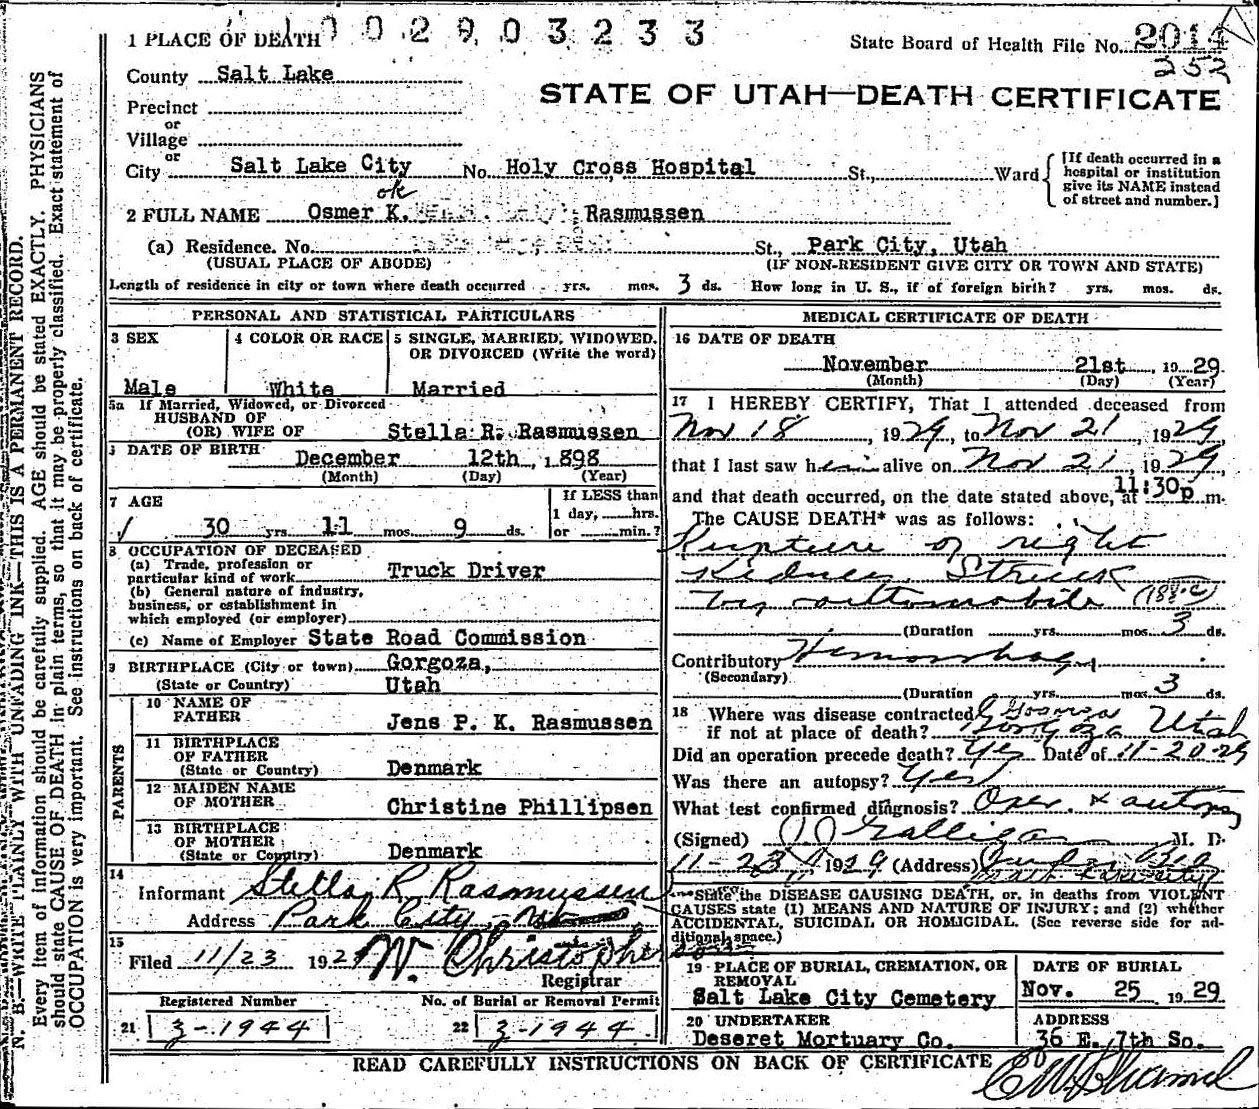 0 0 2 9 0 3 2 3 3
1 PLACE OF DEATH
State Board of Health File No. 2014
252
County Salt Lake
STATE OF UTAH—DEATH CERTIFICATE
Precinct
or
Village
or
City Salt Lake City No. Holy Cross Hospital St., Ward
[If death occurred in a
hospital or institution
give its NAME instead
of street and number.]
ok
2 FULL NAME Osmer K. Rasmussen
(a) Residence. No. St., Park City, Utah
(USUAL PLACE OF ABODE) (IF NON-RESIDENT GIVE CITY OR TOWN AND STATE)
Length of residence in city or town where death occurred yrs. mos. 3 ds. How long in U. S., if of foreign birth? yrs. mos. ds.
N. B.—WRITE PLAINLY WITH UNFADING INK—THIS IS A PERMANENT RECORD.
Every item of information should be carefully supplied. AGE should be stated EXACTLY. PHYSICIANS
should state CAUSE OF DEATH in plain terms, so that it may be properly classified. Exact statement of
OCCUPATION is very important. See instructions on back of certificate.
PERSONAL AND STATISTICAL PARTICULARS
3 SEX
Male
4 COLOR OR RACE
White
5 SINGLE, MARRIED, WIDOWED,
OR DIVORCED (Write the word)
Married
5a If Married, Widowed, or Divorced
HUSBAND OF
(OR) WIFE OF Stella R. Rasmussen
DATE OF BIRTH
December 12th, 1898
(Month) (Day) (Year)
7 AGE
30 yrs 11 mos. 9 ds.
If LESS than
1 day, hrs.
or min.?
8 OCCUPATION OF DECEASED
(a) Trade, profession or
particular kind of work Truck Driver
(b) General nature of industry,
business, or establishment in
which employed (or employer)
(c) Name of Employer State Road Commission
9 BIRTHPLACE (City or town) Gorgoza,
(State or Country) Utah
PARENTS
10 NAME OF
FATHER Jens P. K. Rasmussen
11 BIRTHPLACE
OF FATHER
(State or Country) Denmark
12 MAIDEN NAME
OF MOTHER Christine Phillipsen
13 BIRTHPLACE
OF MOTHER
(State or Country) Denmark
14
Informant Stella R Rasmussen
Address Park City
15
Filed 11/23 1929 W. Christopherson
Registrar
Registered Number No. of Burial or Removal Permit
21 3-1944 22 3-1944
MEDICAL CERTIFICATE OF DEATH
16 DATE OF DEATH
November 21st, 1929.
(Month) (Day) (Year)
17 I HEREBY CERTIFY, That I attended deceased from
Nov 18, 1929, to Nov 21, 1929,
that I last saw him alive on Nov 21, 1929
and that death occurred, on the date stated above, at 11:30p m.
The CAUSE DEATH* was as follows:
Rupture of right
Kidney. Struck
by automobile (188-c)
(Duration yrs. mos. 3 ds.
Contributory Hemorrhage
(Secondary)
(Duration yrs. mos. 3 ds.
18 Where was disease contracted
if not at place of death? Gorgoza Utah
Did an operation precede death? Yes Date of 11-20-29
Was there an autopsy? Yes
What test confirmed diagnosis? Oper. & autopsy
(Signed) Galligan M. D.
11-23 1929 (Address)
State the DISEASE CAUSING DEATH, or, in deaths from VIOLENT
CAUSES state (1) MEANS AND NATURE OF INJURY; and (2) whether
ACCIDENTAL, SUICIDAL OR HOMICIDAL. (See reverse side for ad-
ditional space.)
19 PLACE OF BURIAL, CREMATION, OR
REMOVAL
Salt Lake City Cemetery
DATE OF BURIAL
Nov. 25 1929
20 UNDERTAKER
Deseret Mortuary Co.
ADDRESS
36 E. 7th So.
READ CAREFULLY INSTRUCTIONS ON BACK OF CERTIFICATE